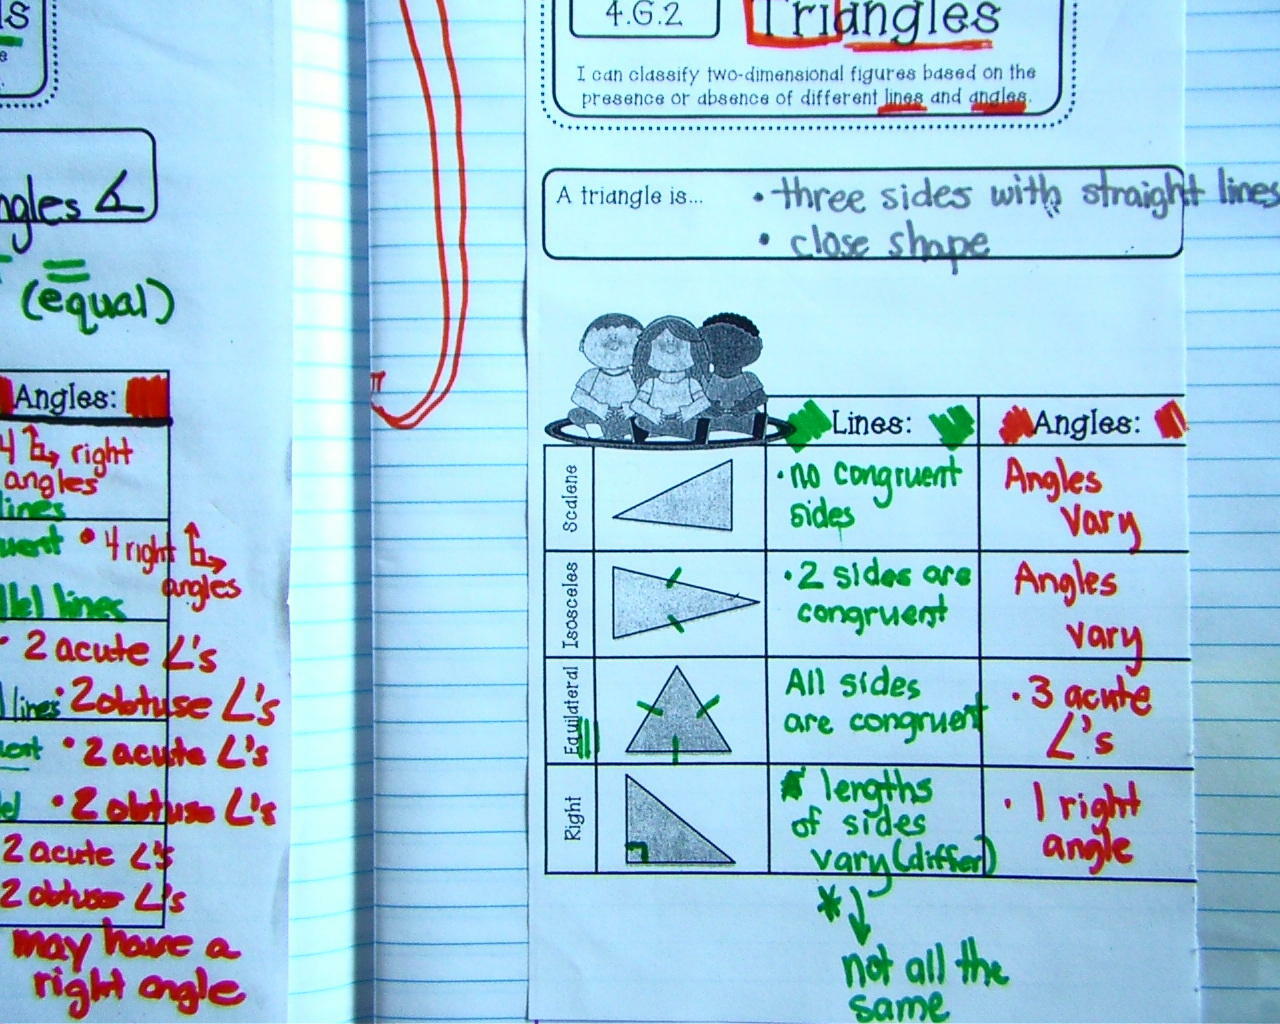 (equal)
Angles:
4 right
angles
lines
4 right
angles
lines
2 acute ∠'s
lines • 2 obtuse ∠'s
• 2 acute ∠'s
• 2 obtuse ∠'s
2 acute ∠'s
2 obtuse ∠'s
may have a
right angle
4.G.2
Triangles
I can classify two-dimensional figures based on the
presence or absence of different lines and angles.
A triangle is... • three sides with straight lines
• close shape
Lines: Angles:
Scalene
• no congruent
sides
Angles
vary
Isosceles
• 2 sides are
congruent
Angles
vary
Equilateral
All sides
are congruent
• 3 acute
∠'s
Right
lengths
of sides
vary (differ)
• 1 right
angle
* ↓
not all the
same